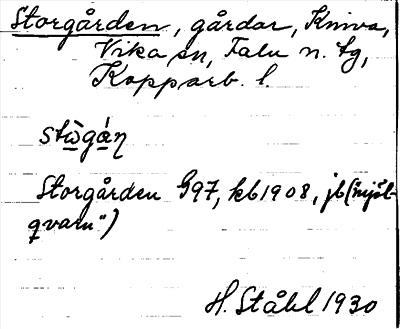 Storgården, gårdar, Kniva,
Vika sn, Falu n. tg,
Kopparb. l.
stὼgάn
Storgården G97, kb1908, jb("mjöl-
qvarn")
H. Ståhl 1930